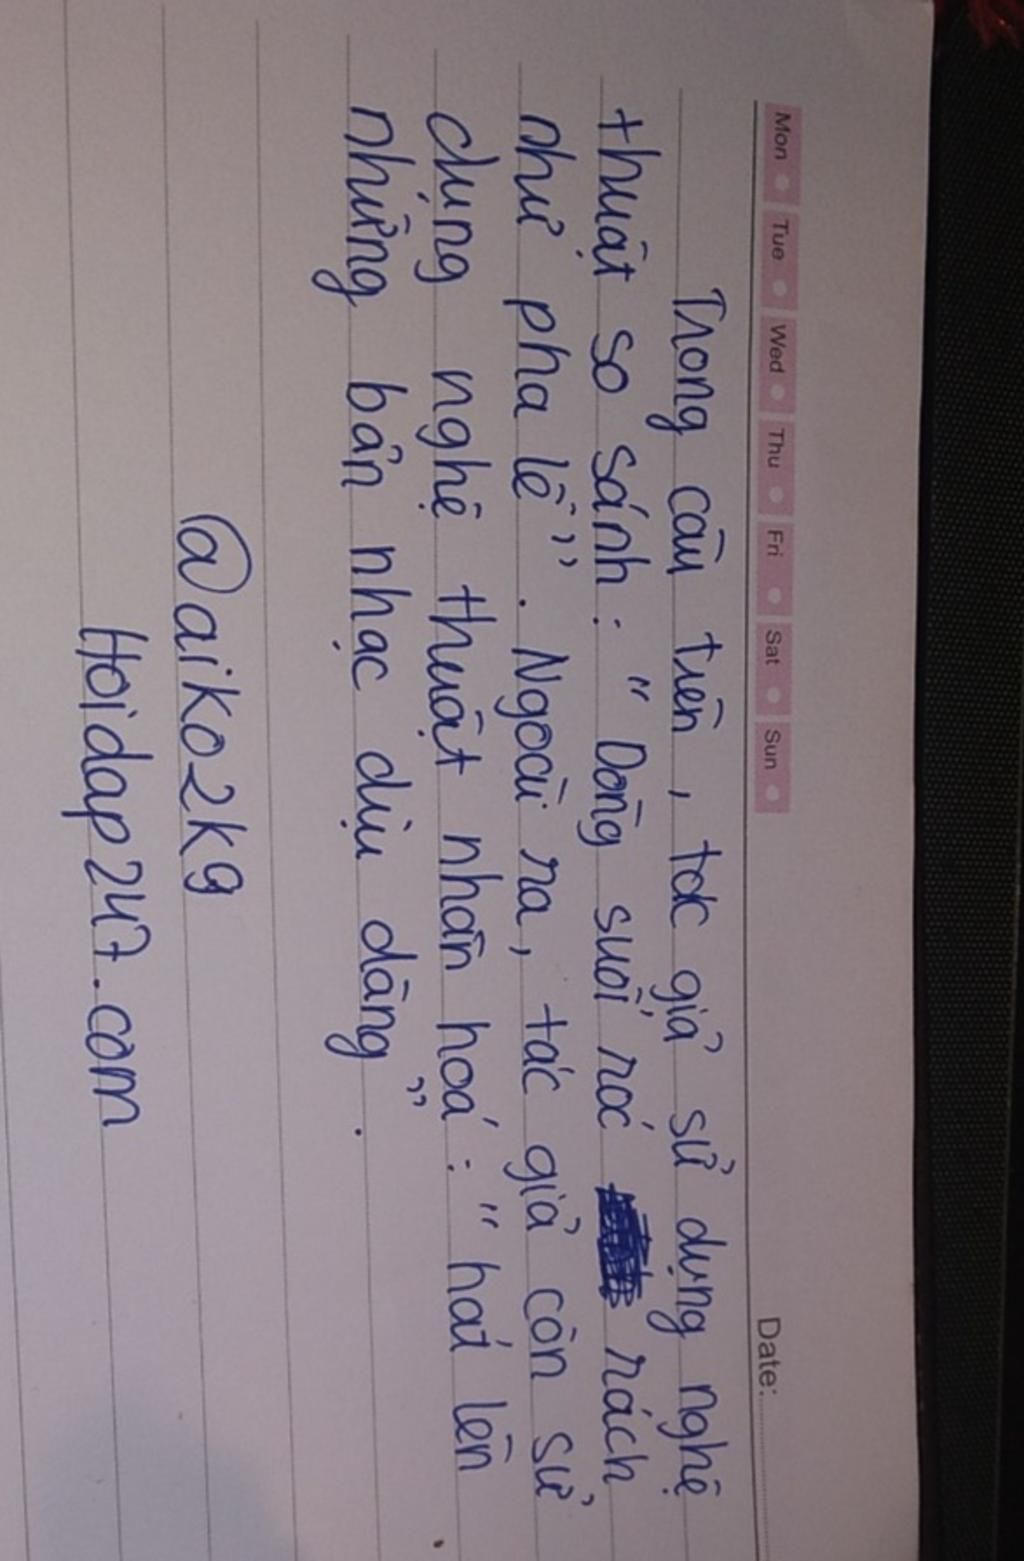 Mon Tue Wed Thu Fri Sat Sun Date:
Trong câu trên, tác giả sử dụng nghệ
thuật so sánh: "Dòng suối róc rách
như pha lê". Ngoài ra, tác giả còn sử
dụng nghệ thuật nhân hoá: "hát lên
những bản nhạc dịu dàng".
@aiko2k9
Hoidap247.com